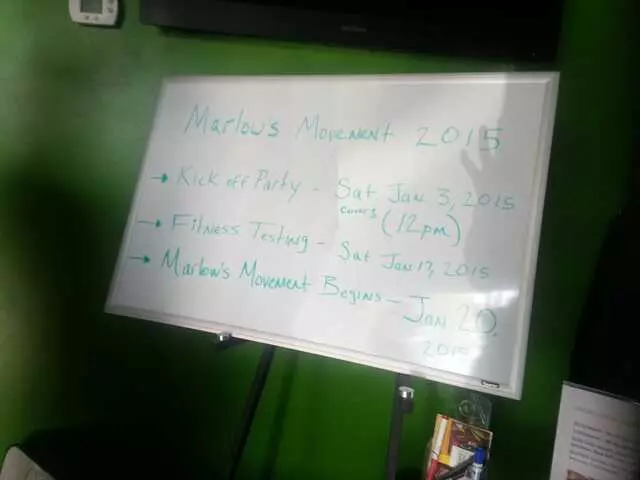 Marlow's Movement 2015
→ Kick off Party - Sat Jan 3, 2015
(12pm)
→ Fitness Testing - Sat Jan 17, 2015
→ Marlow's Movement Begins - Jan 20,
2015